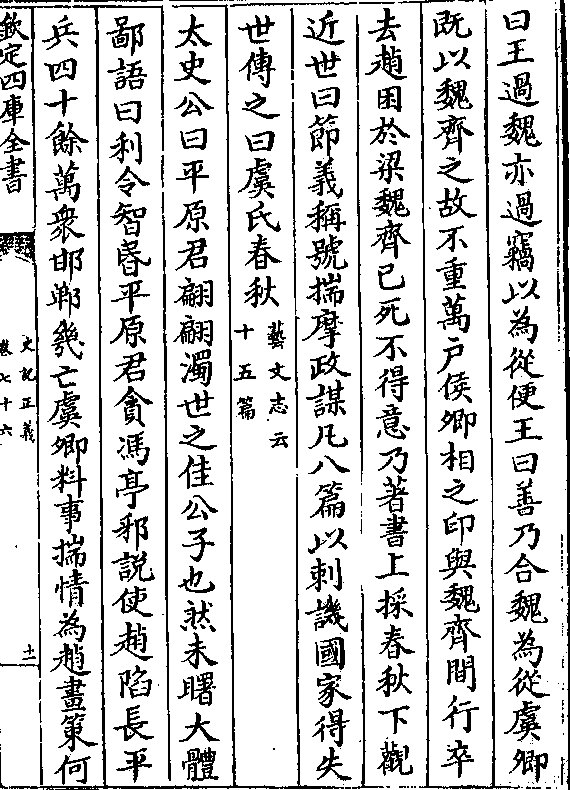 曰王過魏亦過竊以為從便王曰善乃合魏為從虞卿
既以魏齊之故不重萬户侯卿相之印與魏齊間行卒
去趙困於梁魏齊已死不得意乃著書上採春秋下觀
近世曰節義稱號揣摩政謀凡八篇以刺譏國家得失
世傳之曰虞氏春秋
藝文志云
十五篇
太史公曰平原君翩翩濁世之佳公子也然未曙大體
鄙語曰利令智昬平原君貪馮亭邪說使趙陷長平
兵四十餘萬衆邯鄲幾亡虞卿料事揣情為趙畫策何
欽定四庫全書
史記正義
卷七十六
十二